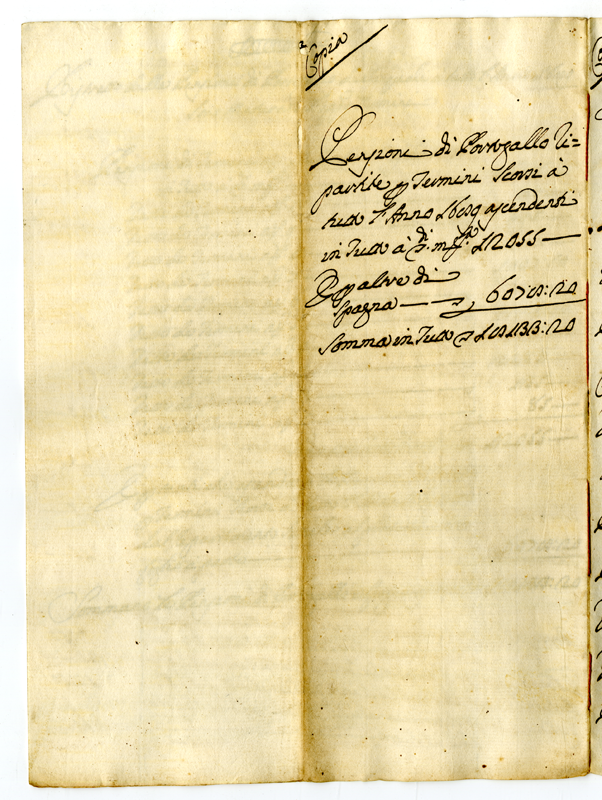 Copia
Pensioni di Portogallo Ri=
partite p Termini Scorsi à
tutt l'Anno 1689 ascendenti
in Tutt à di m.ta 12055 —
E p altre di
Spagna — — 6078:20
Somma in Tutt 18133:20